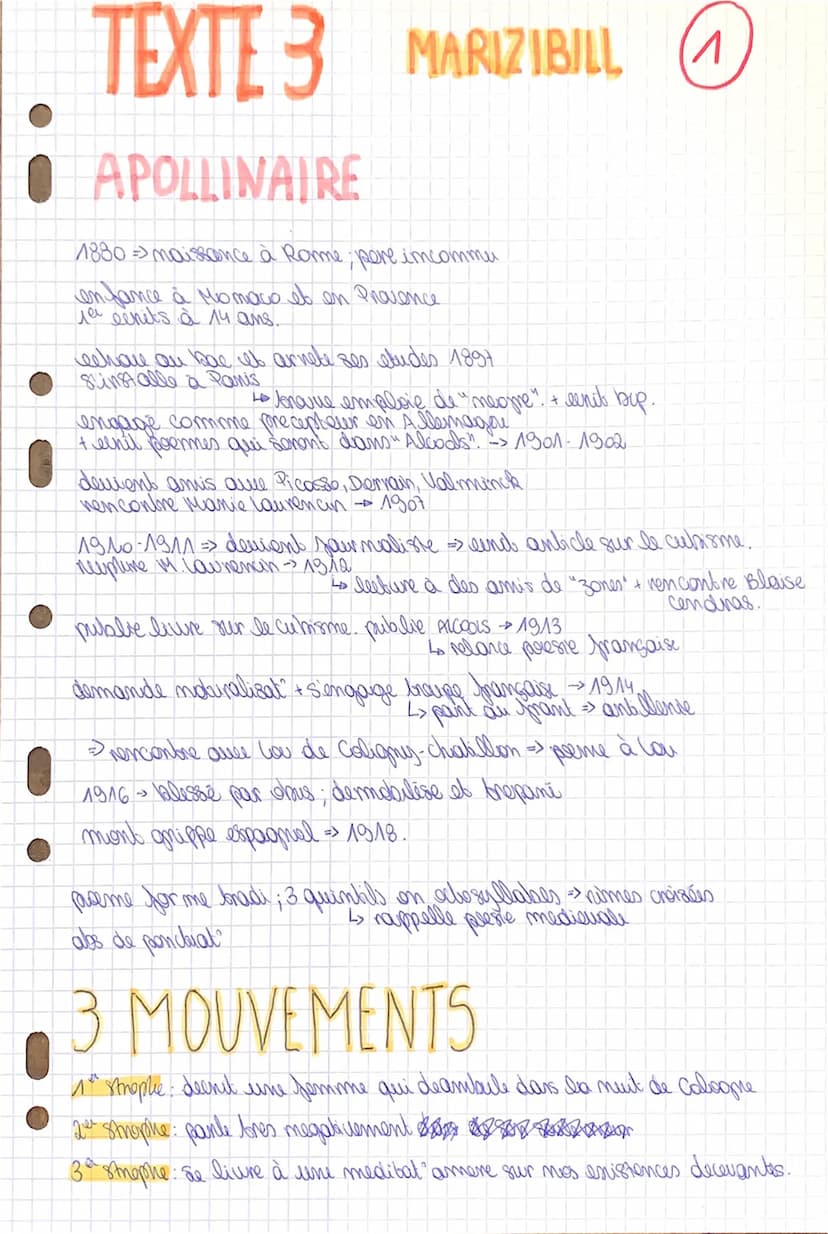 TEXTE 3 MARIZIBILL 1
APOLLINAIRE
1880 => naissance à Rome ; pere inconnu
enfance à Monaco et en Provence
1er ecrits à 14 ans.
echoue au bac et arrete ses etudes 1897
s'installe à Paris
↳ trouve emploie de "negre". + ecrit bcp.
engagé comme precepteur en Allemagne
+ ecrit poemes qui seront dans "Alcools". -> 1901-1902
devient amis avec Picasso, Derrain, Valminck
rencontre Marie Laurencin -> 1907
1910-1911 => devient journaliste => ecrit article sur le cubisme.
rupture M. Laurencin -> 1912
↳ lecture à des amis de "zones" + rencontre Blaise
cendras.
publie livre sur le cubisme. publie ALCOOLS -> 1913
↳ relance poesie française
demande naturalisat° + s'engage troupe française -> 1914
↳ part au front => artillerie
=> rencontre avec Lou de Coligny-chatillon => poeme à Lou
1916 -> blessé par obus ; demobilisé et trepané
mort grippe espagnol => 1918.
poeme forme tradi ; 3 quintils en octosyllabes => rimes croisées
↳ rappelle poesie medievale
abs de ponctuat°
3 MOUVEMENTS
1er strophe : decrit une femme qui deambule dans la nuit de Cologne
2er strophe : parle tres negativement
3e strophe : se livre à une meditat° amere sur nos existences decevantes.